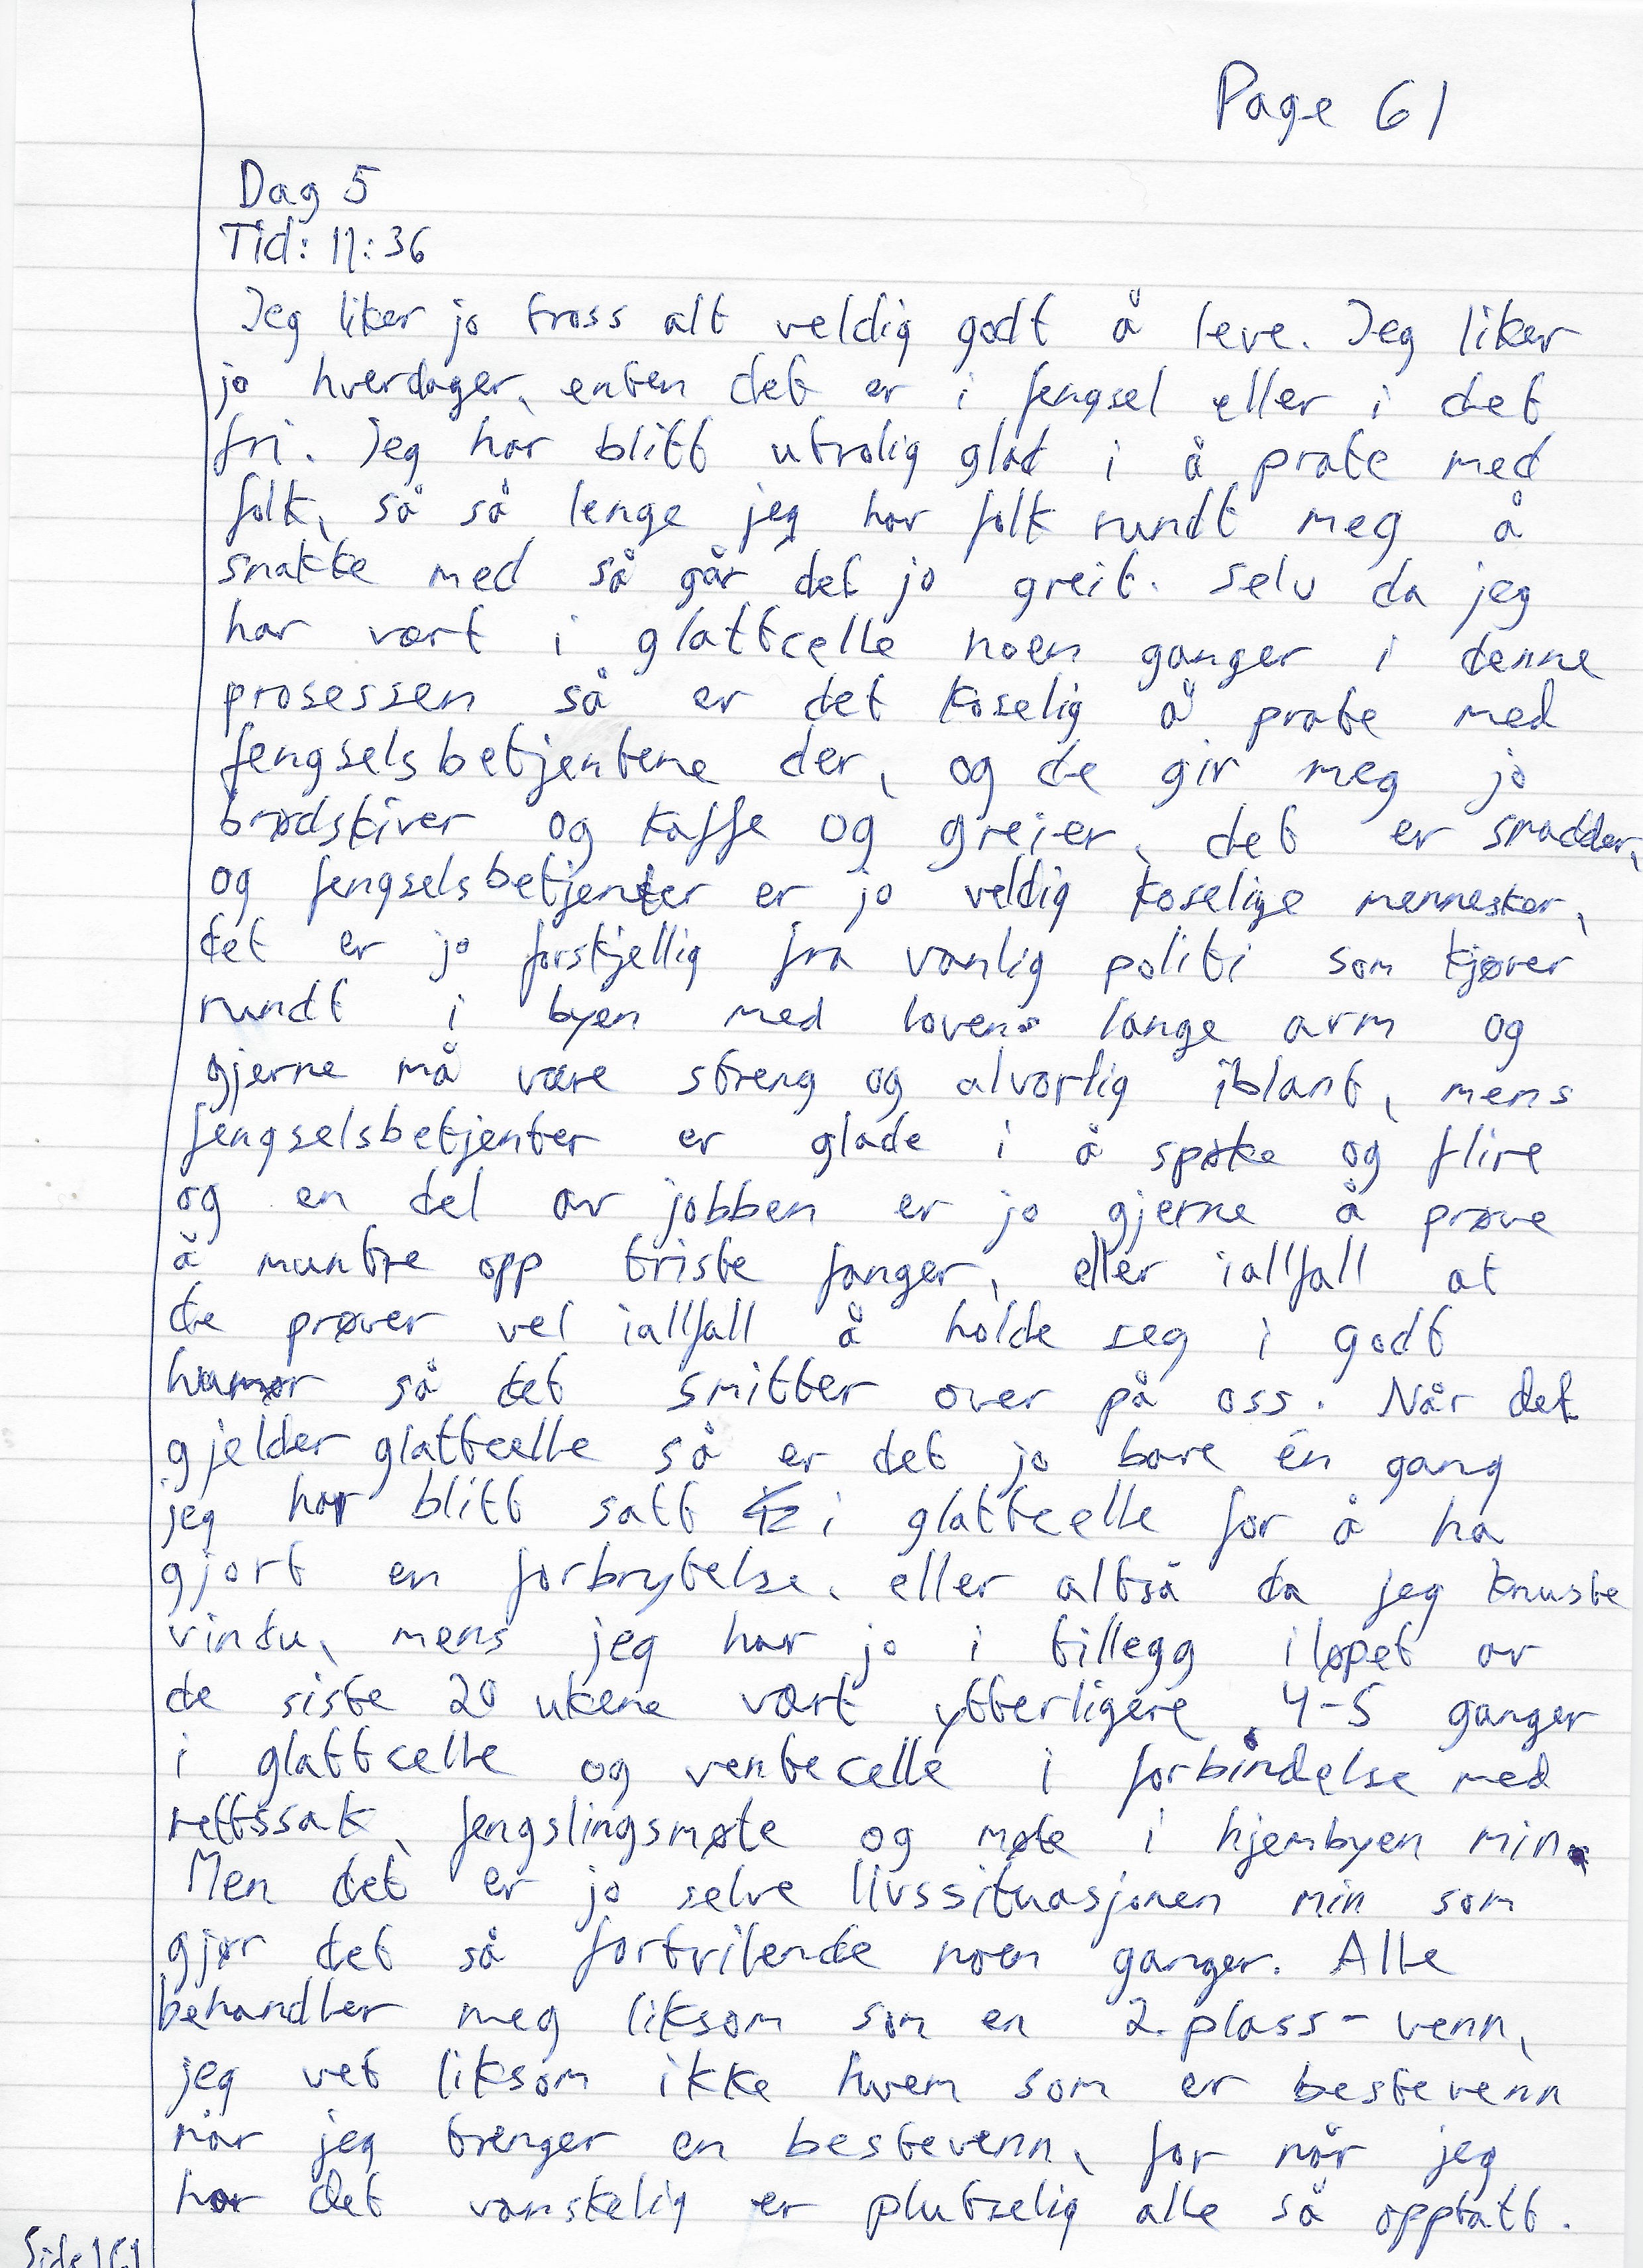 Page 61
Dag 5
Tid: 11:36
Jeg liker jo tross alt veldig godt å leve. Jeg liker
jo hverdager, enten det er i fengsel eller i det
fri. Jeg har blitt utrolig glad i å prate med
folk, så så lenge jeg har folk rundt meg å
snakke med så går det jo greit. Selv da jeg
har vært i glattcelle noen ganger i denne
prosessen så er det koselig å prate med
fengselsbetjentene der, og de gir meg jo
brødskiver og kaffe og greier, det er snadder,
og fengselsbetjenter er jo veldig koselige mennesker,
det er jo forskjellig fra vanlig politi som kjører
rundt i byen med lovens lange arm og
gjerne må være streng og alvorlig iblant, mens
fengselsbetjenter er glade i å spøke og flire
og en del av jobben er jo gjerne å prøve
å muntre opp triste fanger, eller iallfall at
de prøver vel iallfall å holde seg i godt
humør så det smitter over på oss. Når det
gjelder glattcelle så er det jo bare én gang
jeg har blitt satt i glattcelle for å ha
gjort en forbrytelse, eller altså da jeg knuste
vindu, mens jeg har jo i tillegg iløpet av
de siste 20 ukene vært ytterligere 4-5 ganger
i glattcelle og ventecelle i forbindelse med
rettssak, fengslingsmøte og møte i hjembyen min.
Men det er jo selve livssituasjonen min som
gjør det så fortvilende noen ganger. Alle
behandler meg liksom som en 2.plass-venn,
jeg vet liksom ikke hvem som er bestevenn
når jeg trenger en bestevenn, for når jeg
har det vanskelig er plutselig alle så opptatt.